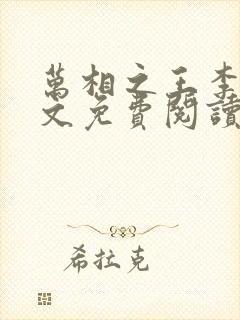 萬相之王李
文免費閱讀
希拉克